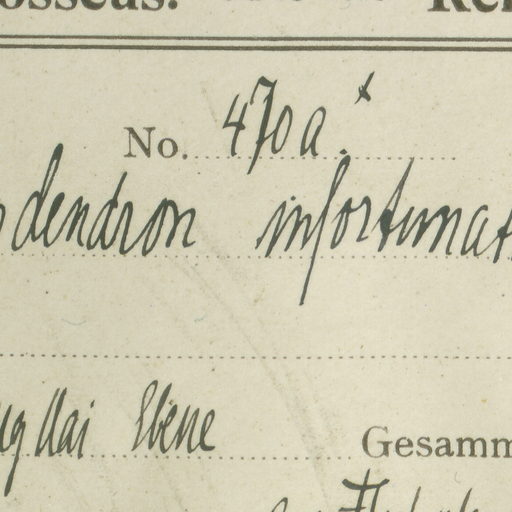 osseus.
No. 470a.x
odendron infortunat
ug Mai Ebene
Gesamm